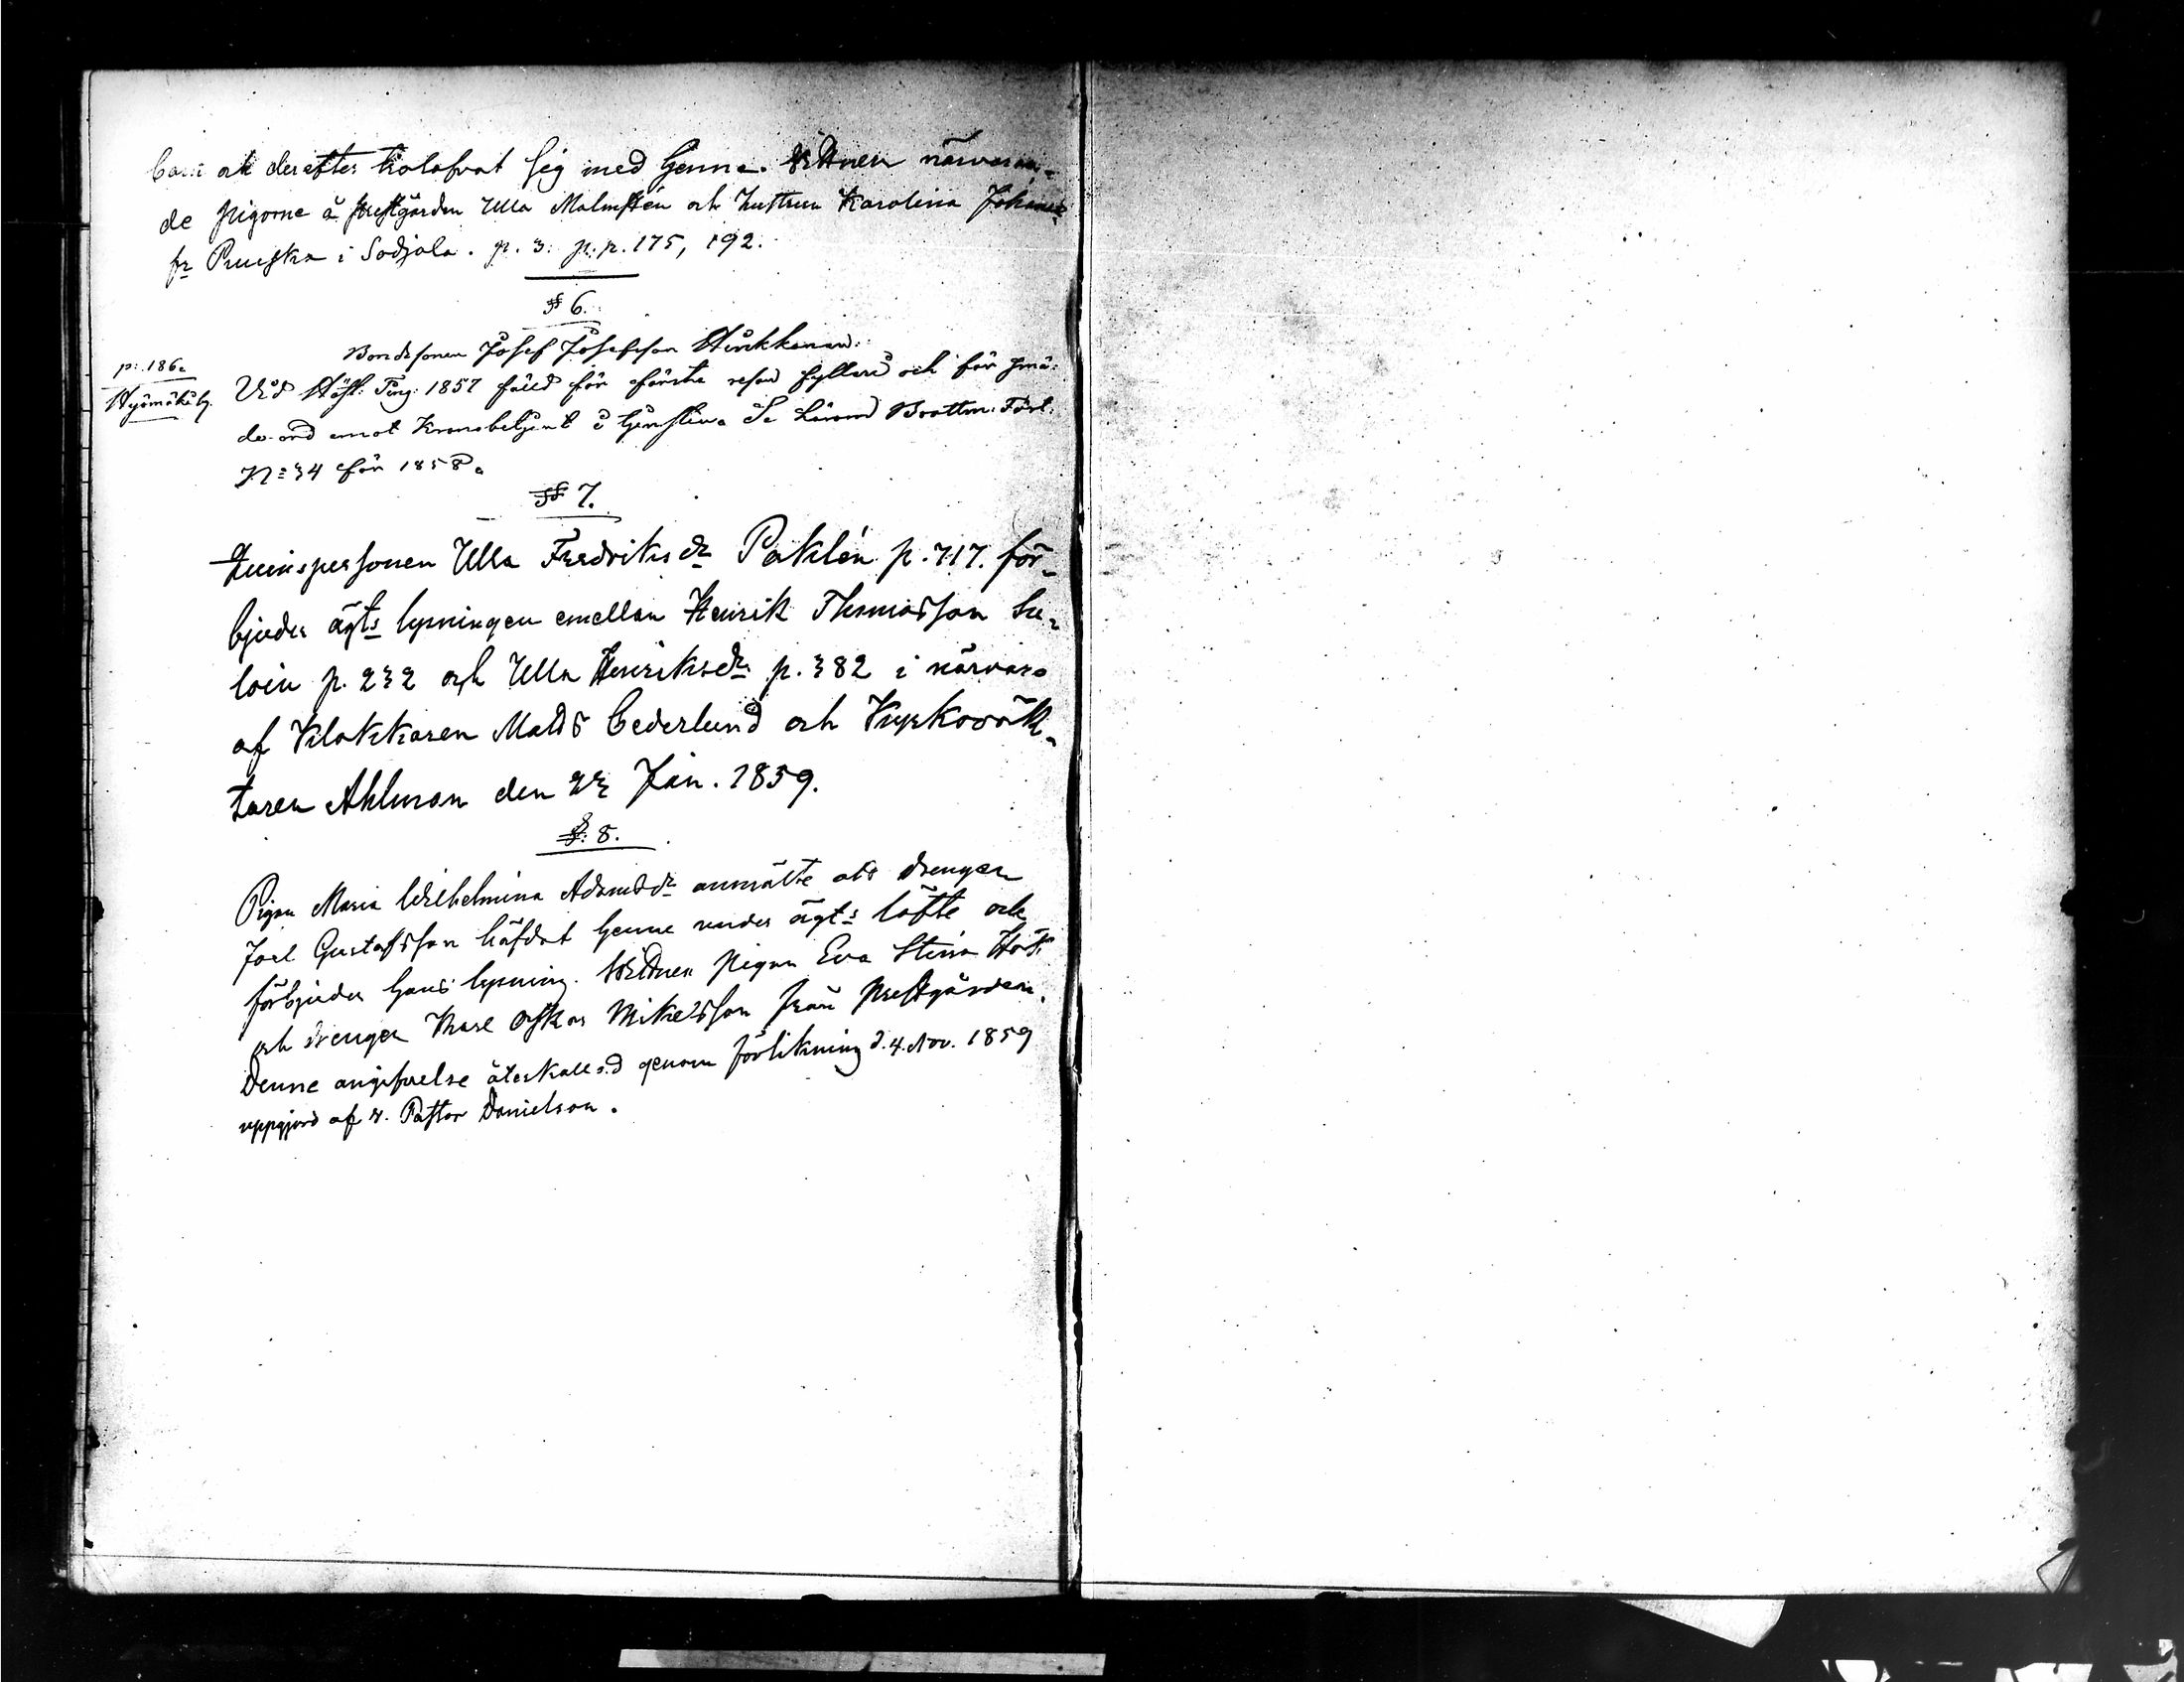 barn och derefter trolofvat sig med henne. Vittnen närvaran-
de pigorne å prestgården Ulla Malmstén och hustrun Karolina Johansdr
fr i Sodjala. p. 3. p.p. 175, 192.
§ 6.
Bondesonen Josef Josefsson Hirkkanen.
p. 186.
Vid Höst. Ting. 1857 fälld för första resan fylleri och för smä-
de ord emot Kronobetjent i tjensten. Se härom Brottm. Fört.
No 34 för 1858.
§ 7.
Qvinspersonen Ulla Fredriksdr Paklén p. 717. för-
bjuder ägts lysningen emellan Henrik Thomasson Su-
loin p. 232 och Ulla Henriksdr p. 382 i närvaro
af Klokkaren Matts Cederlund och Kyrkoväk-
taren Ahlman den 23 Jan. 1859.
§. 8.
Pigan Maria Wilhelmina Adamsdr anmälte att drengen
Joel Gustafsson häfdat henne under ägts löfte och
förbjuder hans lysning. Vittnen pigan Eva Stina
och drengen Karl Oskar Mikelsson från prestgården.
Denne angifvelse återkallad genom förlikning d. 4. Nov. 1859
uppgjord af v. Pastor Danielson.